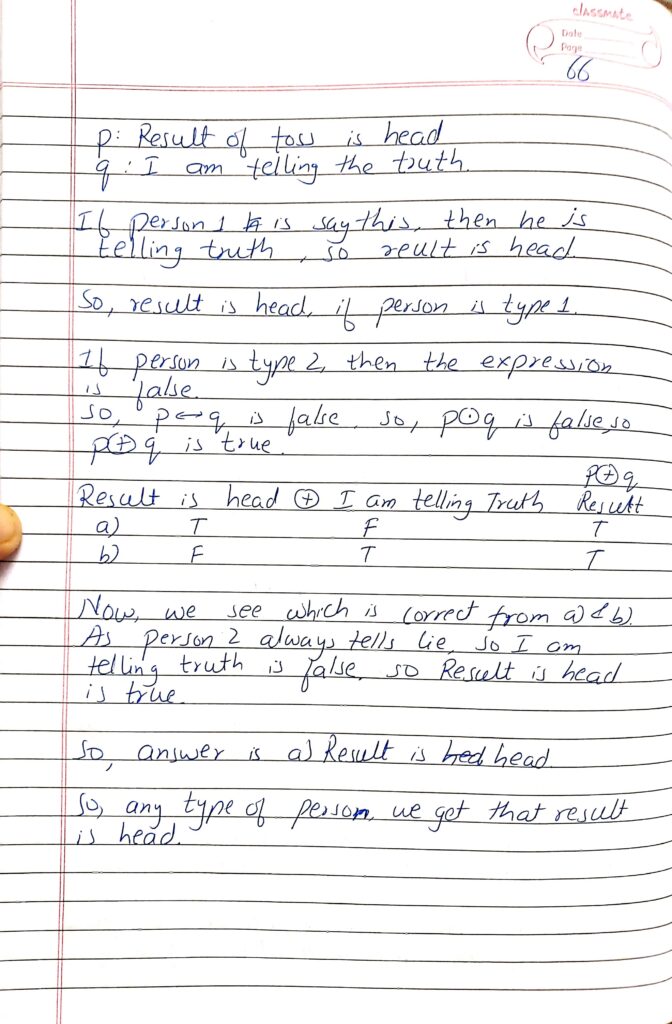 classmate
Date
Page
66
p: Result of toss is head
q: I am telling the truth.
If person 1 is say this, then he is
telling truth, so reult is head.
So, result is head, if person is type 1.
If person is type 2, then the expression
is false.
So, p↔q is false. so, p⊙q is false, so
p⊕q is true.
p⊕q
Result is head ⊕ I am telling Truth Result
a) T F T
b) F T T
Now, we see which is correct from a) & b).
As person 2 always tells lie, so I am
telling truth is false, so Result is head
is true.
So, answer is a) Result is head.
So, any type of person, we get that result
is head.